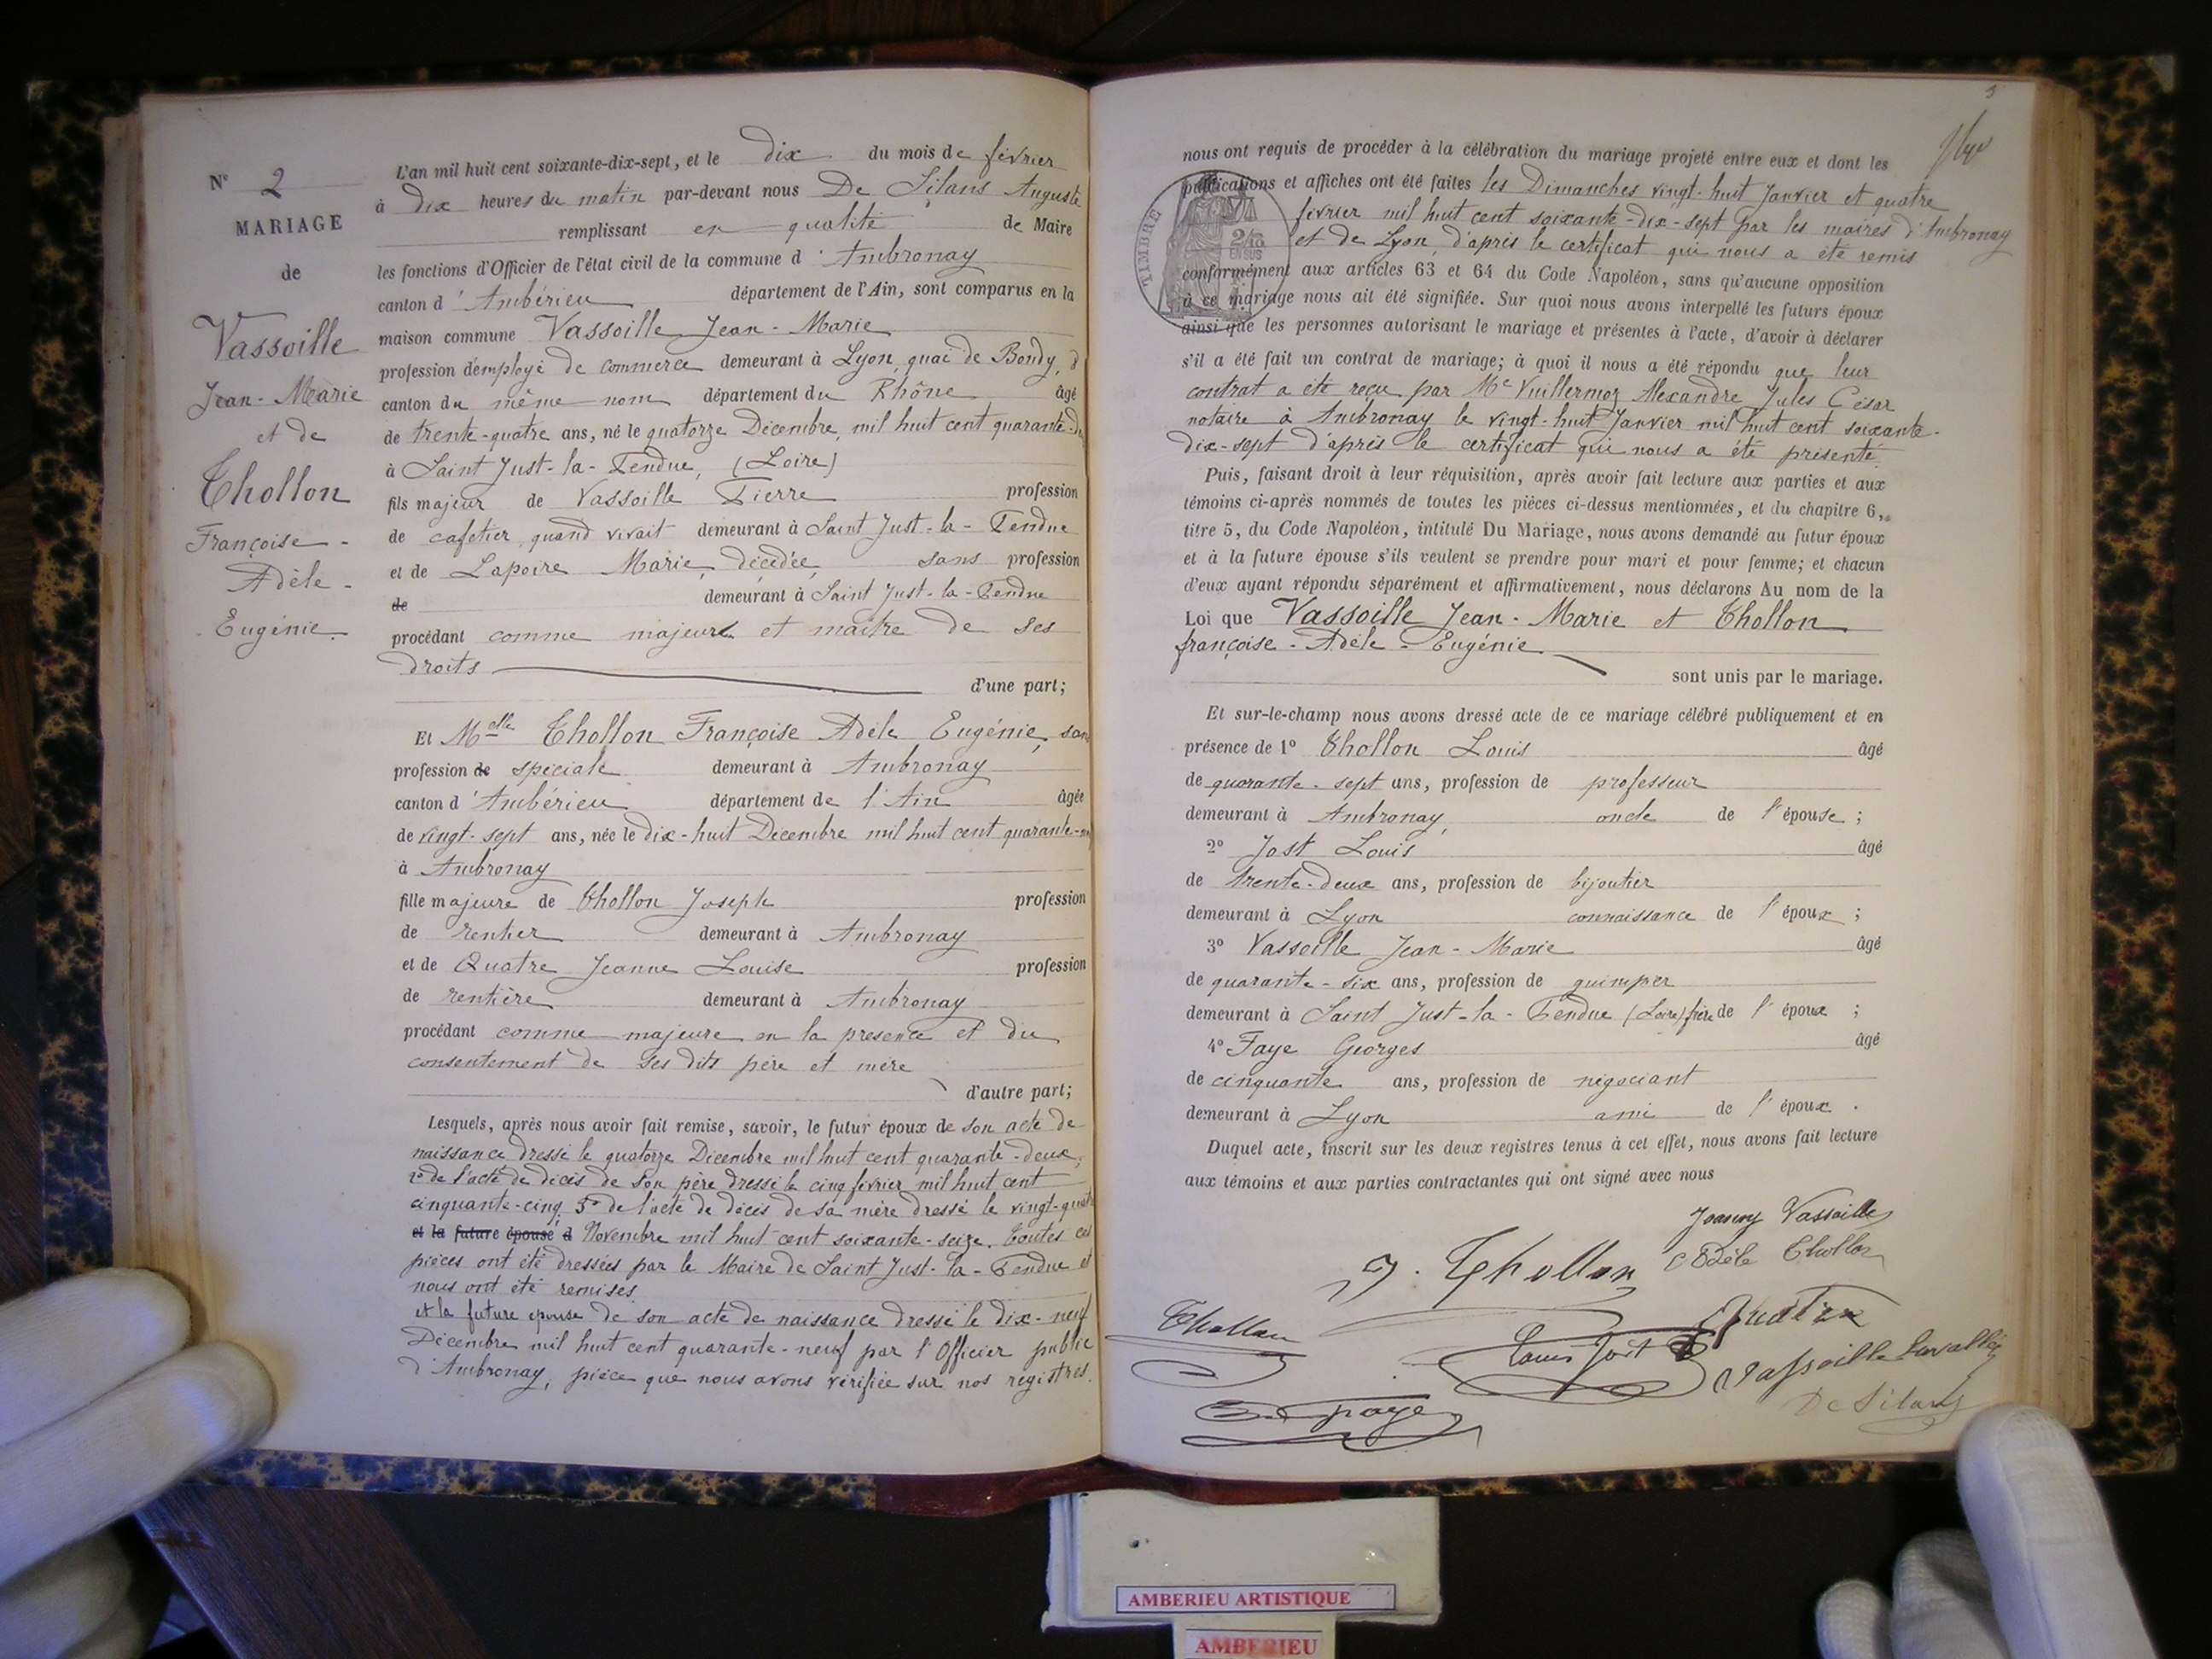 N° 2
MARIAGE
de
Vassoille
Jean-Marie
et de
Thollon
Françoise -
Adèle -
Eugénie.
L'an mil huit cent soixante-dix-sept, et le dix du mois de février
à dix heures du matin par-devant nous De Silans Auguste
remplissant en qualité de Maire
les fonctions d'Officier de l'état civil de la commune d'Ambronay
canton d'Ambérieu département de l'Ain, sont comparus en la
maison commune Vassoille Jean-Marie
profession d'employé de commerce demeurant à Lyon, quai de Bondy,
canton du même nom département du Rhône âgé
de trente-quatre ans, né le quatorze Décembre, mil huit cent quarante-
à Saint Just-la-Pendue, (Loire)
fils majeur de Vassoille Pierre profession
de cafetier quand vivait demeurant à Saint Just-la-Pendue
et de Lapoire Marie, décédée, sans profession
de demeurant à Saint Just-la-Pendue
procédant comme majeur et maître de ses
droits
d'une part;
Et Melle Thollon Françoise Adèle Eugénie, sans
profession de spéciale demeurant à Ambronay
canton d'Ambérieu département de l'Ain âgée
de vingt-sept ans, née le dix-huit Décembre mil huit cent quarante-
à Ambronay
fille majeure de Thollon Joseph profession
de rentier demeurant à Ambronay
et de Quatre Jeanne Louise profession
de rentière demeurant à Ambronay
procédant comme majeure en la présence et du
consentement de ses dits père et mère
d'autre part;
Lesquels, après nous avoir fait remise, savoir, le futur époux de son acte de
naissance dressé le quatorze Décembre mil huit cent quarante-deux,
2° de l'acte de décès de son père dressé le cinq février mil huit cent
cinquante-cinq, 3° de l'acte de décès de sa mère dressé le vingt-quatre
et la future épouse d Novembre mil huit cent soixante-seize. Toutes ces
pièces ont été dressées par le Maire de Saint Just-la-Pendue et
nous ont été remises
et la future épouse de son acte de naissance dressé le dix-neuf
Décembre mil huit cent quarante-neuf par l'Officier public
d'Ambronay, pièce que nous avons vérifiée sur nos registres.
nous ont requis de procéder à la célébration du mariage projeté entre eux et dont les
publications et affiches ont été faites les Dimanches vingt-huit Janvier et quatre
février mil huit cent soixante-dix-sept par les maires d'Ambronay
et de Lyon, d'après le certificat qui nous a été remis
TIMBRE
2/10
EN SUS
conformément aux articles 63 et 64 du Code Napoléon, sans qu'aucune opposition
à ce mariage nous ait été signifiée. Sur quoi nous avons interpellé les futurs époux
ainsi que les personnes autorisant le mariage et présentes à l'acte, d'avoir à déclarer
s'il a été fait un contrat de mariage; à quoi il nous a été répondu que leur
contrat a été reçu par Me Vuillermoz Alexandre Jules César
notaire à Ambronay le vingt-huit Janvier mil huit cent soixante-
dix-sept d'après le certificat qui nous a été présenté.
Puis, faisant droit à leur réquisition, après avoir fait lecture aux parties et aux
témoins ci-après nommés de toutes les pièces ci-dessus mentionnées, et du chapitre 6,
titre 5, du Code Napoléon, intitulé Du Mariage, nous avons demandé au futur époux
et à la future épouse s'ils veulent se prendre pour mari et pour femme; et chacun
d'eux ayant répondu séparément et affirmativement, nous déclarons Au nom de la
Loi que Vassoille Jean-Marie et Thollon
françoise-Adèle-Eugénie
sont unis par le mariage.
Et sur-le-champ nous avons dressé acte de ce mariage célébré publiquement et en
présence de 1° Thollon Louis âgé
de quarante-sept ans, profession de professeur
demeurant à Ambronay, oncle de l'épouse;
2° Jost Louis âgé
de trente-deux ans, profession de bijoutier
demeurant à Lyon connaissance de l'époux;
3° Vassoille Jean-Marie âgé
de quarante-six ans, profession de guimper
demeurant à Saint Just-la-Pendue (Loire) frère de l'époux;
4° Faye Georges âgé
de cinquante ans, profession de négociant
demeurant à Lyon ami de l'époux.
Duquel acte, inscrit sur les deux registres tenus à cet effet, nous avons fait lecture
aux témoins et aux parties contractantes qui ont signé avec nous
Joanny Vassoille
J. Thollon Adèle Thollon
Thollon Quatre
Louis Jost Vassoille Lavallée
Faye De Silans
AMBERIEU ARTISTIQUE
AMBERIEU